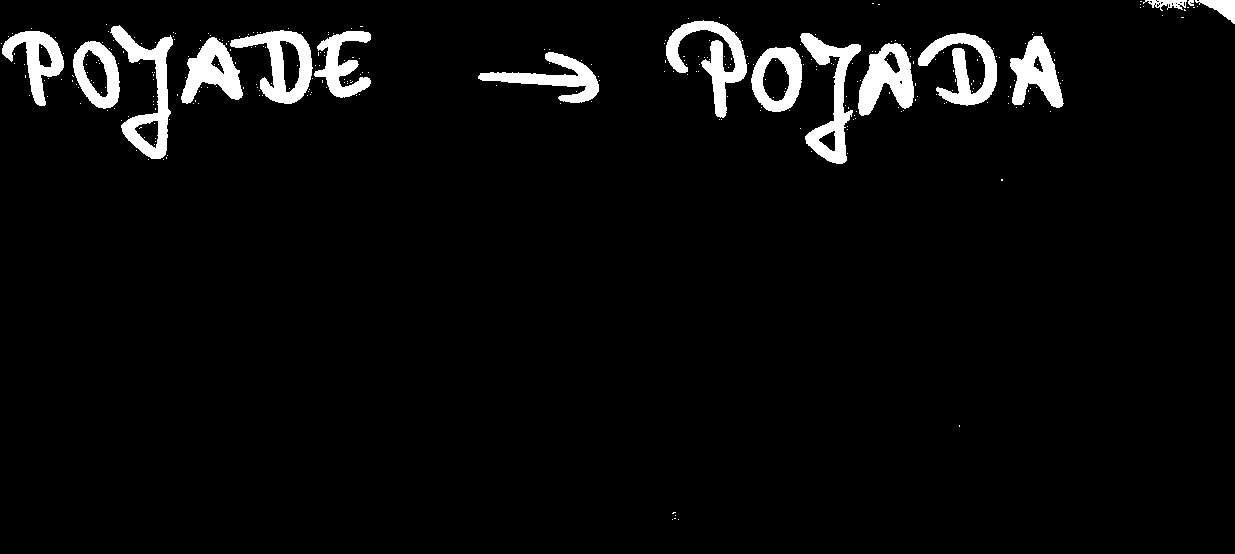 POJADE → POJADA